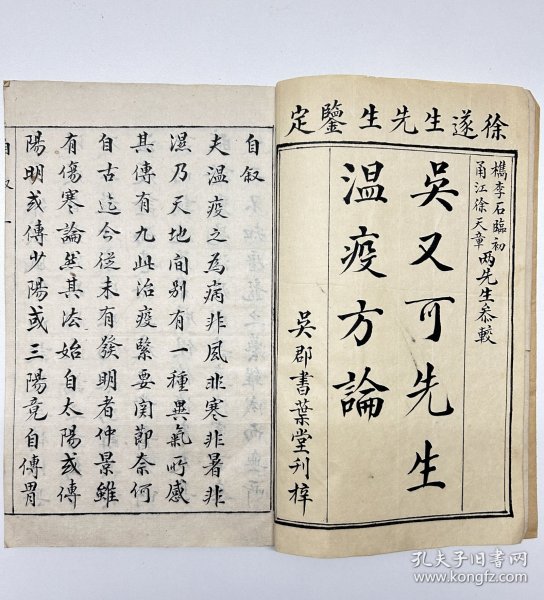 徐遂生先生鑒定
檇李石臨初
甬江徐天章
两先生叅較
吳又可先生
溫疫方論
吳郡書葉堂刋梓
自叙
夫溫疫之為病非風非寒非暑非
濕乃天地間别有一種異氣所感
其傳有九此治疫緊要関節奈何
自古迄今從未有發明者仲景雖
有傷寒論然其法始自太陽或傳
陽明或傳少陽或三陽竟自傳胃
自叙
一
孔夫子旧书网
www.kongfz.com